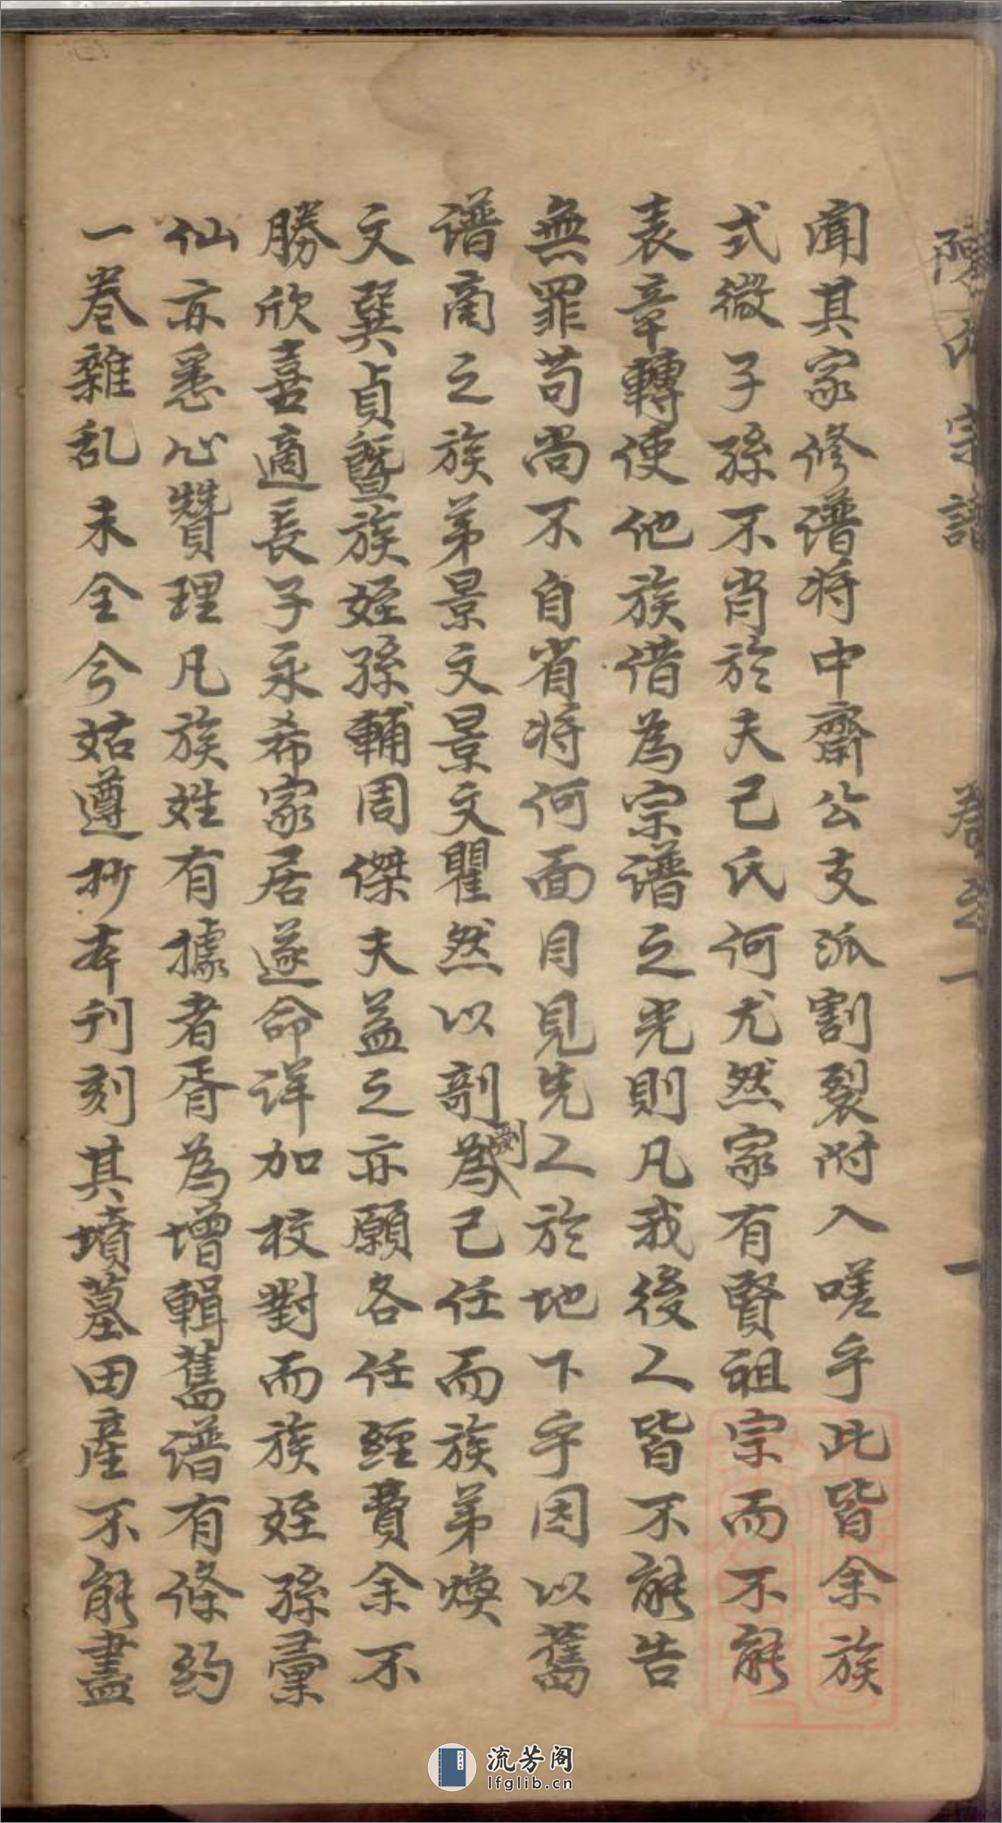 陳氏宗譜 卷之一 一
聞其家修谱将中齋公支派割裂附入嗟乎此皆余族
式微子孫不肖於夫己氏何尤然家有賢祖宗而不能
表章轉使他族借為宗谱之光則凡我後人皆不能告
無罪苟尚不自省将何面目見先人於地下乎因以舊
谱商之族弟景文景文瞿然以剞劂為己任而族弟煥
文巽貞暨族姪孫輔周傑夫益之亦願各任經費余不
勝欣喜適長子永希家居遂命详加校對而族姪孫稾
仙亦悉心贊理凡族姓有據者胥為增輯舊谱有條約
一卷雜乱未全今姑遵抄本刊刻其墳墓田產不能盡
流芳阁
lfglib.cn